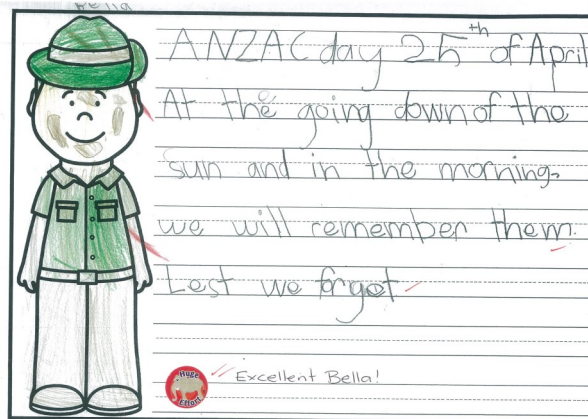 Bella
ANZAC day 25th of April
At the going down of the
sun and in the morning.
we will remember them.
Lest we forget
Huge Effort
Excellent Bella!